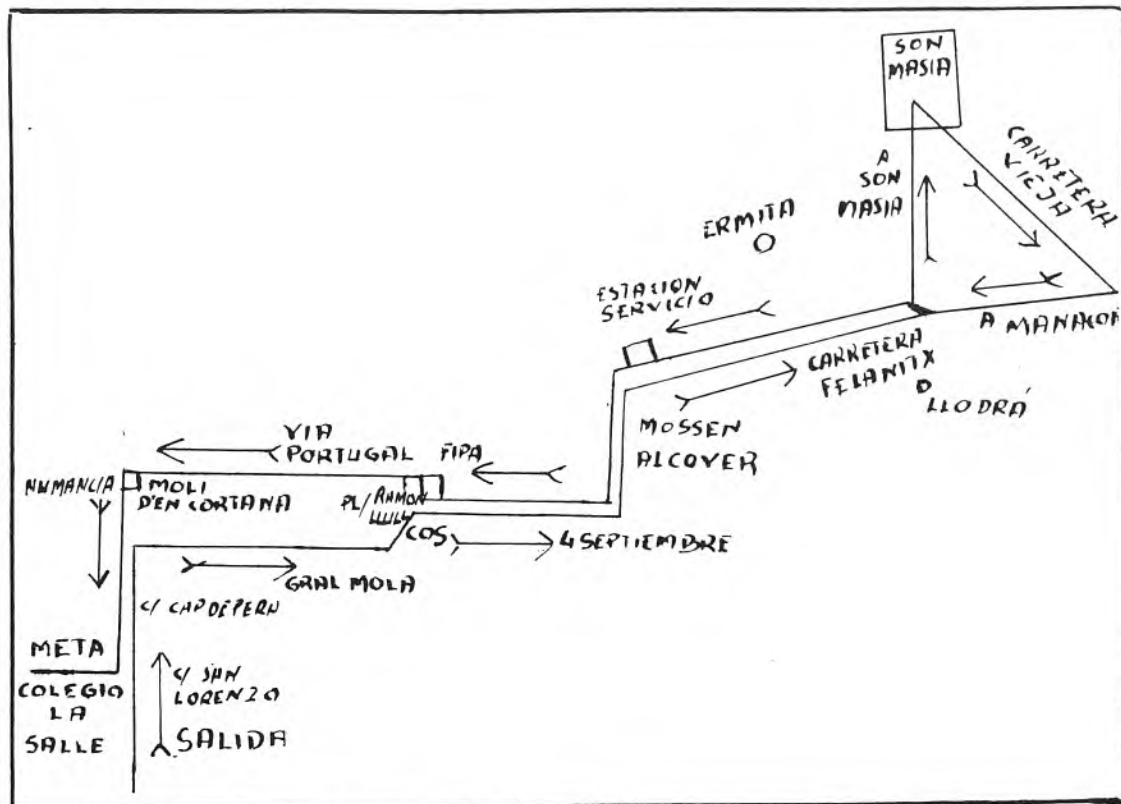 SON
MASIA
CARRETERA
VIEJA
A
SON
MASIA
ERMITA
ESTACION
SERVICIO
A MANACOR
CARRETERA
FELANITX
LLODRÁ
MOSSEN
ALCOVER
VIA
PORTUGAL
FIPA
NUMANCIA
MOLI
D'EN CORTANA
PL/ RAMON
LLULL
COS
4 SEPTIEMBRE
GRAL MOLA
C/ CAPDEPERA
META
COLEGIO
LA
SALLE
C/ SAN
LORENZO
SALIDA